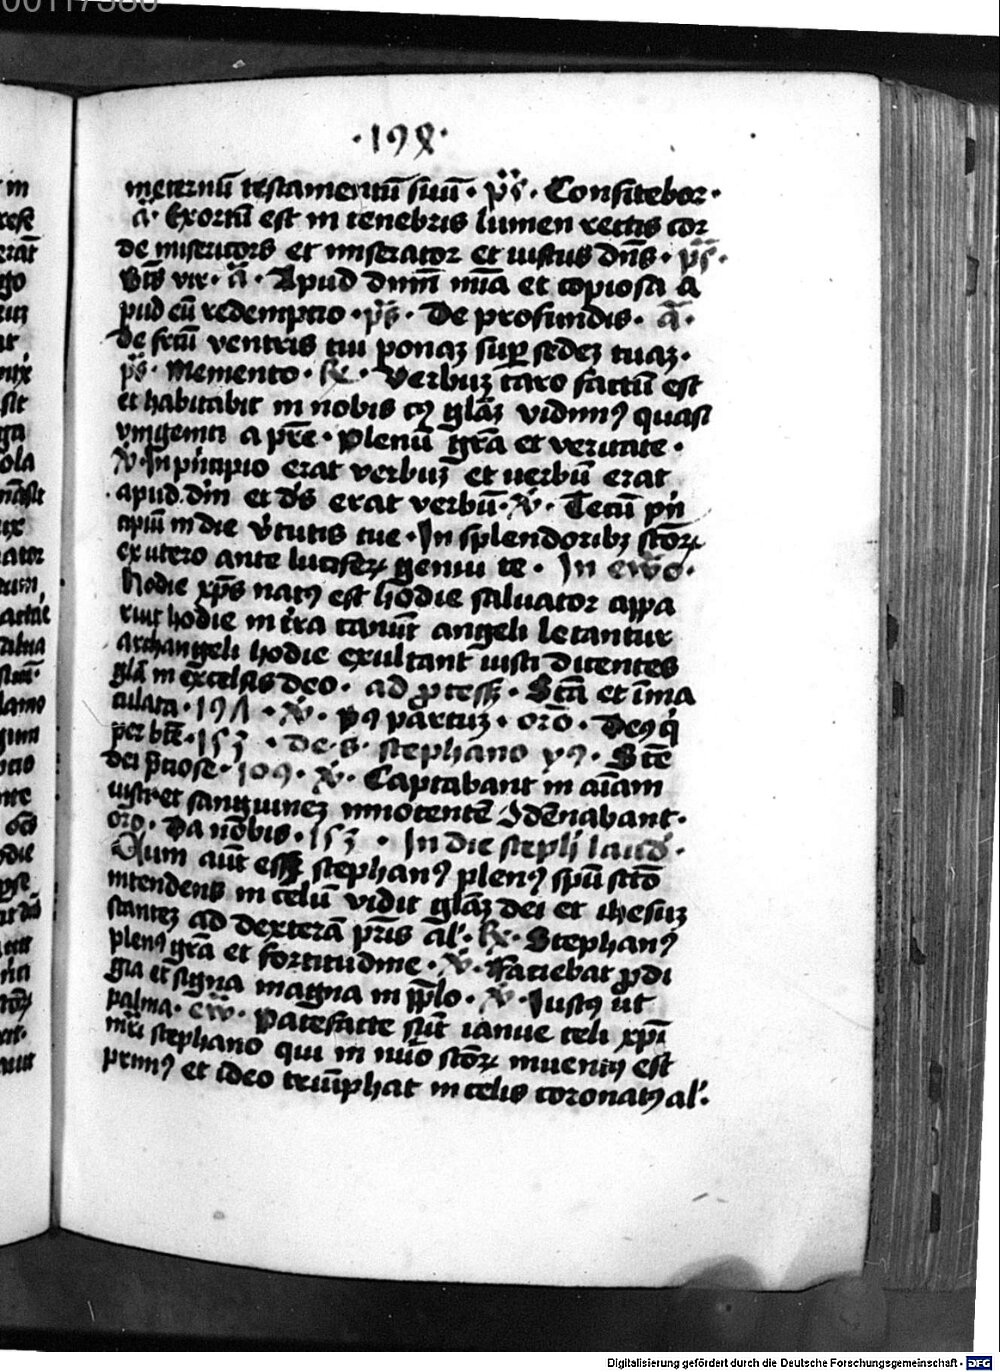 ·198·
ineternū testamentū suū · ps̄ · Confitebor ·
ā · Exortū est in tenebris lumen rectis cor
de misericors et miserator et iustus dn̄s · ps̄ ·
Btūs vir · ā · Apud dnm̄ mīa et copiosa a
pud eū redemptio · ps̄ · De profundis · ā ·
de fctū ventris tui ponaʒ suꝑ sedeʒ tuaʒ ·
ps̄ · Memento · ℟ · Verbuʒ caro factū est
et habitabit in nobis cꝰ glāʒ vidimꝰ quasi
vnigeniti a pr̄e · plenū gr̄a et veritate ·
℣ · In pn̄cipio erat verbuʒ et verbū erat
apud dm̄ et ds̄ erat verbū · ℣ · Tecū pn̄
cipiū in die v̄tutis tue · In splendoribꝫ sctōꝝ
ex utero ante lucifeꝝ genui te · In ewō ·
Hodie xp̄s natꝰ est hodie saluator appa
ruit hodie in tr̄a canūt angeli letantur
archangeli hodie exultant iusti dicentes
glā in excelsis deo · ad ꝓcess̄ · Sctā et īma
culata · 191 · ℣ · pꝰ partuʒ · orō · Deꝰ q̄
per bt̄e · 153 · de · S · stephano yꝰ · Sctē
dei p̄ciose · 109 · ℣ · Captabant in aīam
iusti et sanguineʒ innocentē 9dēnabant ·
orō · Da nōbis · 153 · In die steph̄ laud̄ ·
Cum aūt esseʒ stephanꝰ plenꝰ spū sctō
intendens in celū vidit glāʒ dei et ihesuʒ
stanteʒ ad dexterā pr̄is al̄ · ℟ · Stephanꝰ
plenꝰ gr̄a et fortitudine · ℣ · Faciebat ꝓdi
gia et signa magna in pp̄lo · ℣ · Iustꝰ ut
palma · ew̄ · patefacte sūt ianue celi xp̄i
mr̄i stephano qui in nūo sctōꝝ inuentꝰ est
primꝰ et ideo triūphat in celis coronatꝰ al̄ ·
Digitalisierung gefördert durch die Deutsche Forschungsgemeinschaft - DFG